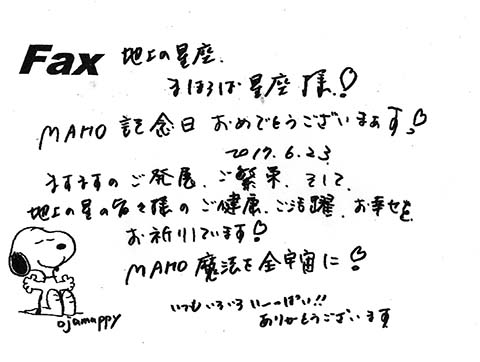 Fax 地上の星座、
まほろば星座 様!
MAHO 記念日 おめでとうございまぁす!
2017.6.23
ますますのご発展、ご繁栄、そして、
地上の星の皆々様のご健康、ご活躍、お幸せを
お祈りしています!
MAHO 魔法を全宇宙に!
いつもいろいろいーっぱい!!
ありがとうございます
ojamappy